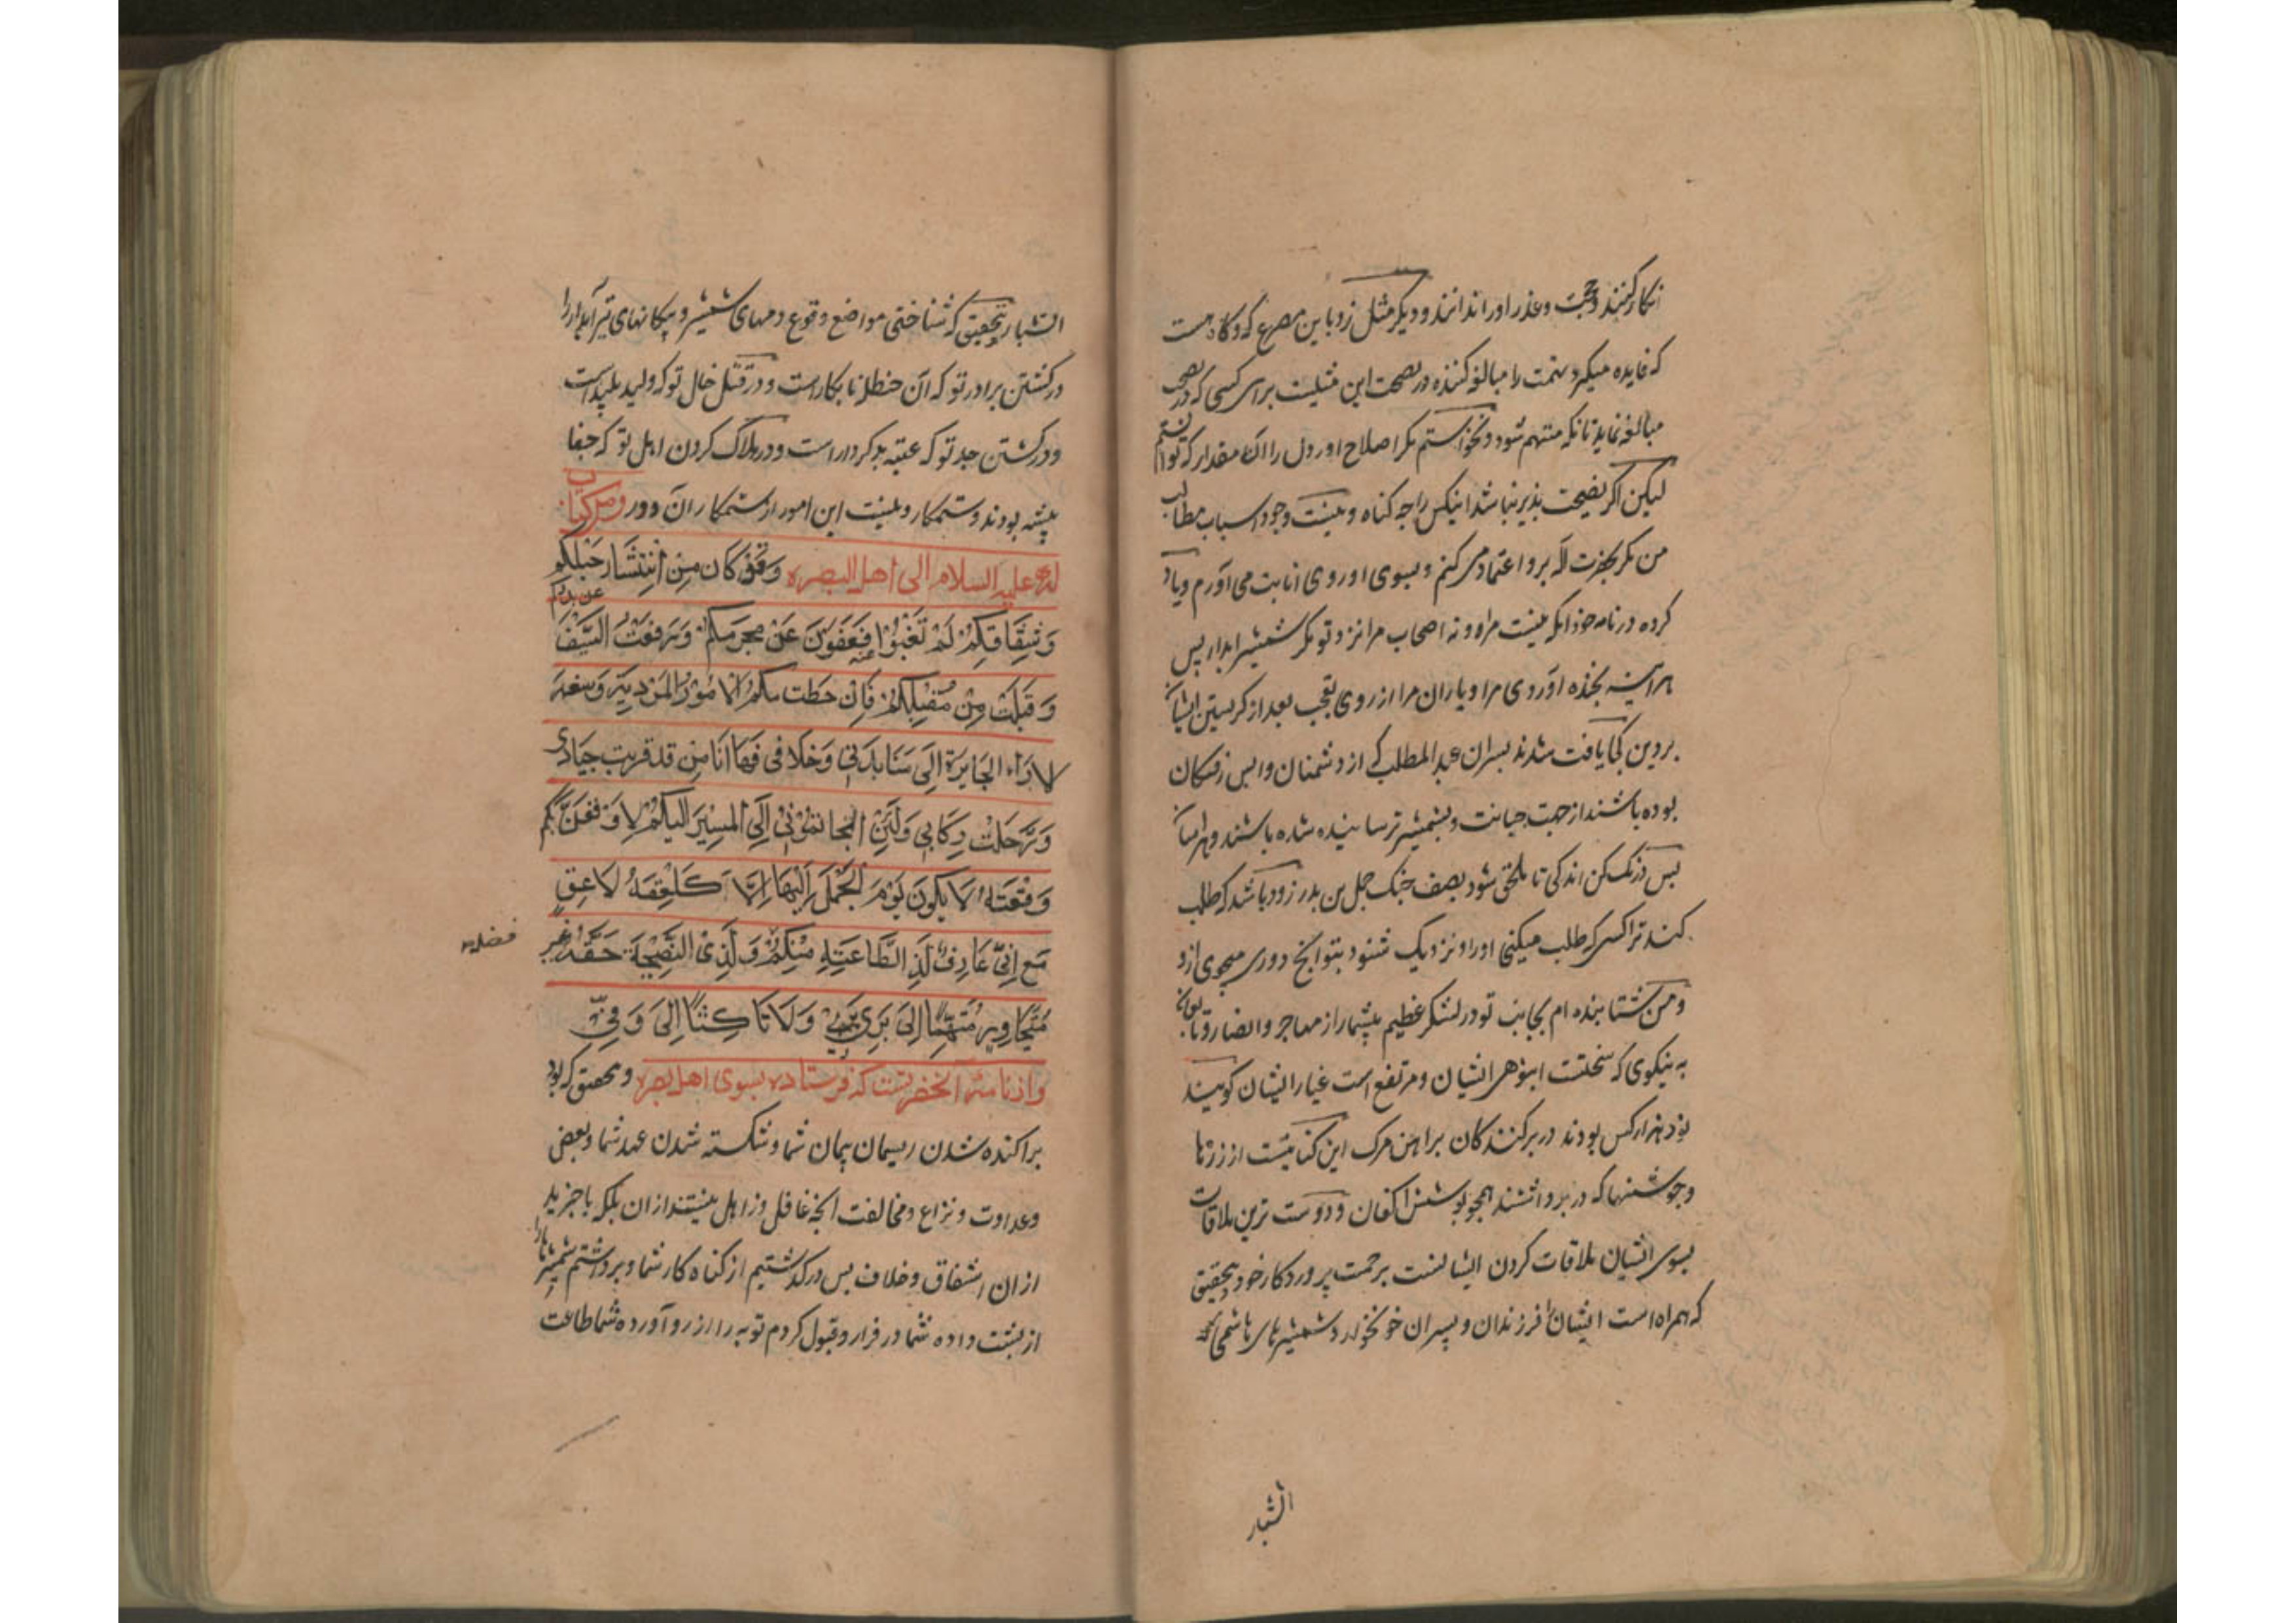 انکار کنند و حجت و عذر او را ندانند و دیگر مثل زد باین مصرع که و گاه هست
که فایده میگیرد تهمت را مبالغه کننده در نصیحت این مثلیست برای کسی که در نصیحت
مبالغه نماید تا نکه متهم شود و نخواستم مگر اصلاح اور دل را آن مقدار که توانستم
لیکن اگر نصیحت پذیر نباشد اینکس را چه گناه و نیست وجود اسباب مطالب
من مگر بحضرت اله برو اعتماد می کنم و بسوی او روی انابت می آورم و یاد
کرده در نامه خود انکه نیست مرا و و نه اصحاب مرا نزد تو مگر شمشیر ابدار پس
هر اینه بخنده آوردی مرا و یاران مرا از روی تعجب بعد از گریستن ایشان
بر دین کجا یافت شدند پسران عبد المطلب که از دشمنان واپس رفتگان
بوده باشند از جهت جبانت و بشمشیر ترسانیده شده باشند و هراسان
پس درنگ کن اندکی تا ملحق شود بصف جنگ حمل بن بدر زود باشد که طلب
کند ترا کسی که طلب میکنی او را و نزدیک شود بتو آنچ دوری میجوی ازو
و من شتابنده ام بجانب تو در لشکر عظیم بیشمار از مهاجر و انصار و تابعان
به نیکوی که سختست انبوهی ایشان و مرتفع است غبار ایشان کویند
نود هزار کس بودند در برکنندکان پیراهن مرگ این کنایتست از زرها
و جوشنها که در بر داشتند همچو پوشش اکفان و دوست ترین ملاقات
بسوی ایشان ملاقات کردن ایشانست برحمت پروردکار خود بتحقیق
که همراه است ایشان را فرزندان و پسران خونخوار و شمشیرهای هاشمی که
الشبار
الشبار بتحقیق که شناختی مواضع وقوع دمهای شمشیر و پیکانهای تیر آبدار را
در کشتن برادر تو که آن حنظل نابکار است و در قتل خال تو که ولید پلید است
و در کشتن جد تو که عتبه بد کردار است و در هلاک کردن اهل تو که جفا
پیشه بودند و ستمکار و نیست این امور از ستمکاران دور ومن کتاب
له علیه السلام الی اهل البصره وقد کان من انتشار حبلکم
وشقاقکم لم تغبوا عنه فعفوت عن مجرمکم ورفعت السیف عن مدبرکم
وقبلت من مقبلکم فان خطت بکم الامور المردیة وسفه
لاراء الجایرة الی منابذتی وخلافی فها انا من قد قربت جیادی
ورحلت رکابی ولئن الجاتمونی الی المسیر الیکم لاوقعن بکم
وقعته لا یکون یوم الجمل الیها الا کلعقة لاعق
مع انی عارف لذی الطاعته منکم ولذی النصیحة حقه غیر
فضله
متجاوز متهما الی بری ولا ناکثا الی وفی
و از نامۀ آنحضرتست که فرستاده بسوی اهل بصره و بتحقیق که بود
پراکنده شدن ریسمان پیمان شما و شکسته شدن عهد شما و بعض
و عداوت و نزاع و مخالفت آنچه غافل و زاهل نیستند از ان بلکه با خبرید
از ان اشفاق و خلاف پس در کذشتیم از کناه کار شما و برداشتم شمشیر را
از پشت داده شما در فرار و قبول کردم توبه را از رو آورده شما طاعت